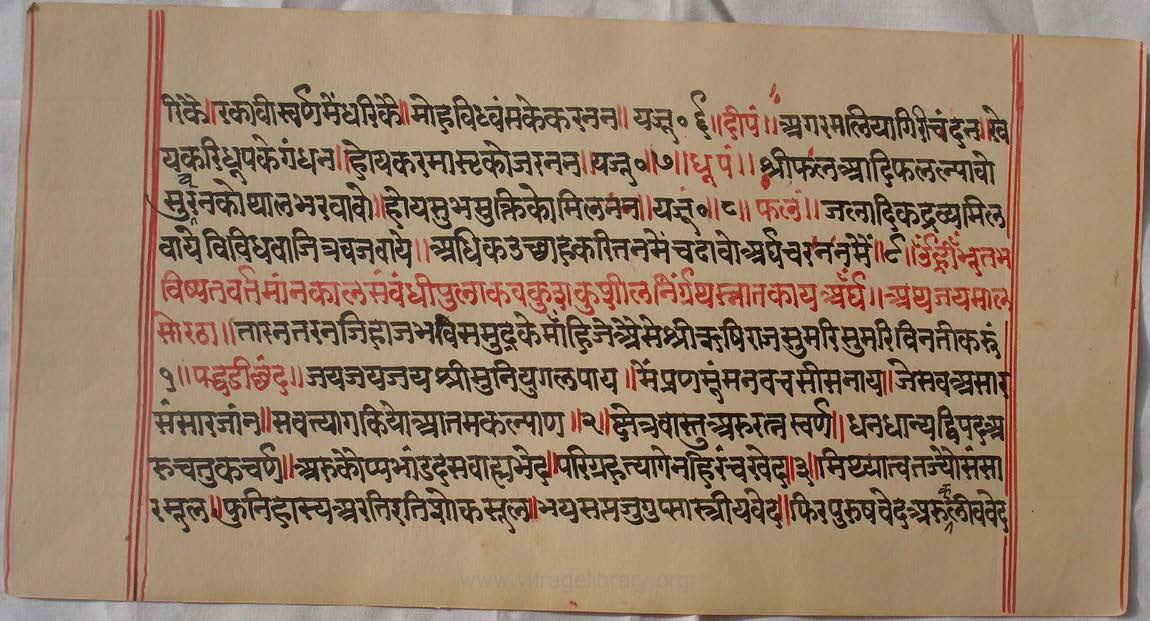 रिकै॥रकावीस्वर्णमेंधरिकै॥मोहविध्वंसकेकरनन॥यजू०६॥दीपं॥अगरमलियागिरिचंदन॥खे
यकरिधूपकेगंधन॥होयकरमास्टकोजरनन॥यजू०॥७॥धूपं॥श्रीफलआदिफलल्यावो
सुवरनकोथालभरवावो॥होयसुभमुक्तिकोमिलनन॥यजूं०॥८॥फलं॥जलादिकद्रव्यमिल
वाये विविधवाजित्रवजवाये॥अधिकउच्छाहकरितनमें चढावोअर्घचरननमें॥९॥ॐह्रींभूतभ
विष्यतवर्त्तमांनकालसंवंधीपुलाकवकुशकुशीलनिर्ग्रंथस्नातकाय अर्घं॥अथजयमाल
सोरठा॥तारनतरनजिहाजभविसमुद्रकेमांहिजेऐसेश्रीऋषिराजसुमरिसुमरिविनतीकरूं
१॥पद्धडीछंद॥जयजयजय श्रीमुनियुगलपाय॥मेंप्रणमूंमनवचसीसनाय॥जेसवअसार
संसारजांन॥सवत्यागकियोआतमकल्याण॥२॥क्षेत्रवास्तुअरुरत्नस्वर्ण॥धनधान्यद्विपदअ
रुचतुकचर्ण॥अरुकौप्यभांडदसवाह्यभेद॥परिग्रहत्यागेनहिरंचखेद॥३॥मिथ्यात्वतज्यौसंसा
रमूल॥फुनिहास्यअरतिरतिशोकसूल॥भयसप्तजुगुप्सास्त्रीयवेद॥फिरपुरुषवेदअरुक्लीववेद
www.vitragelibrary.org